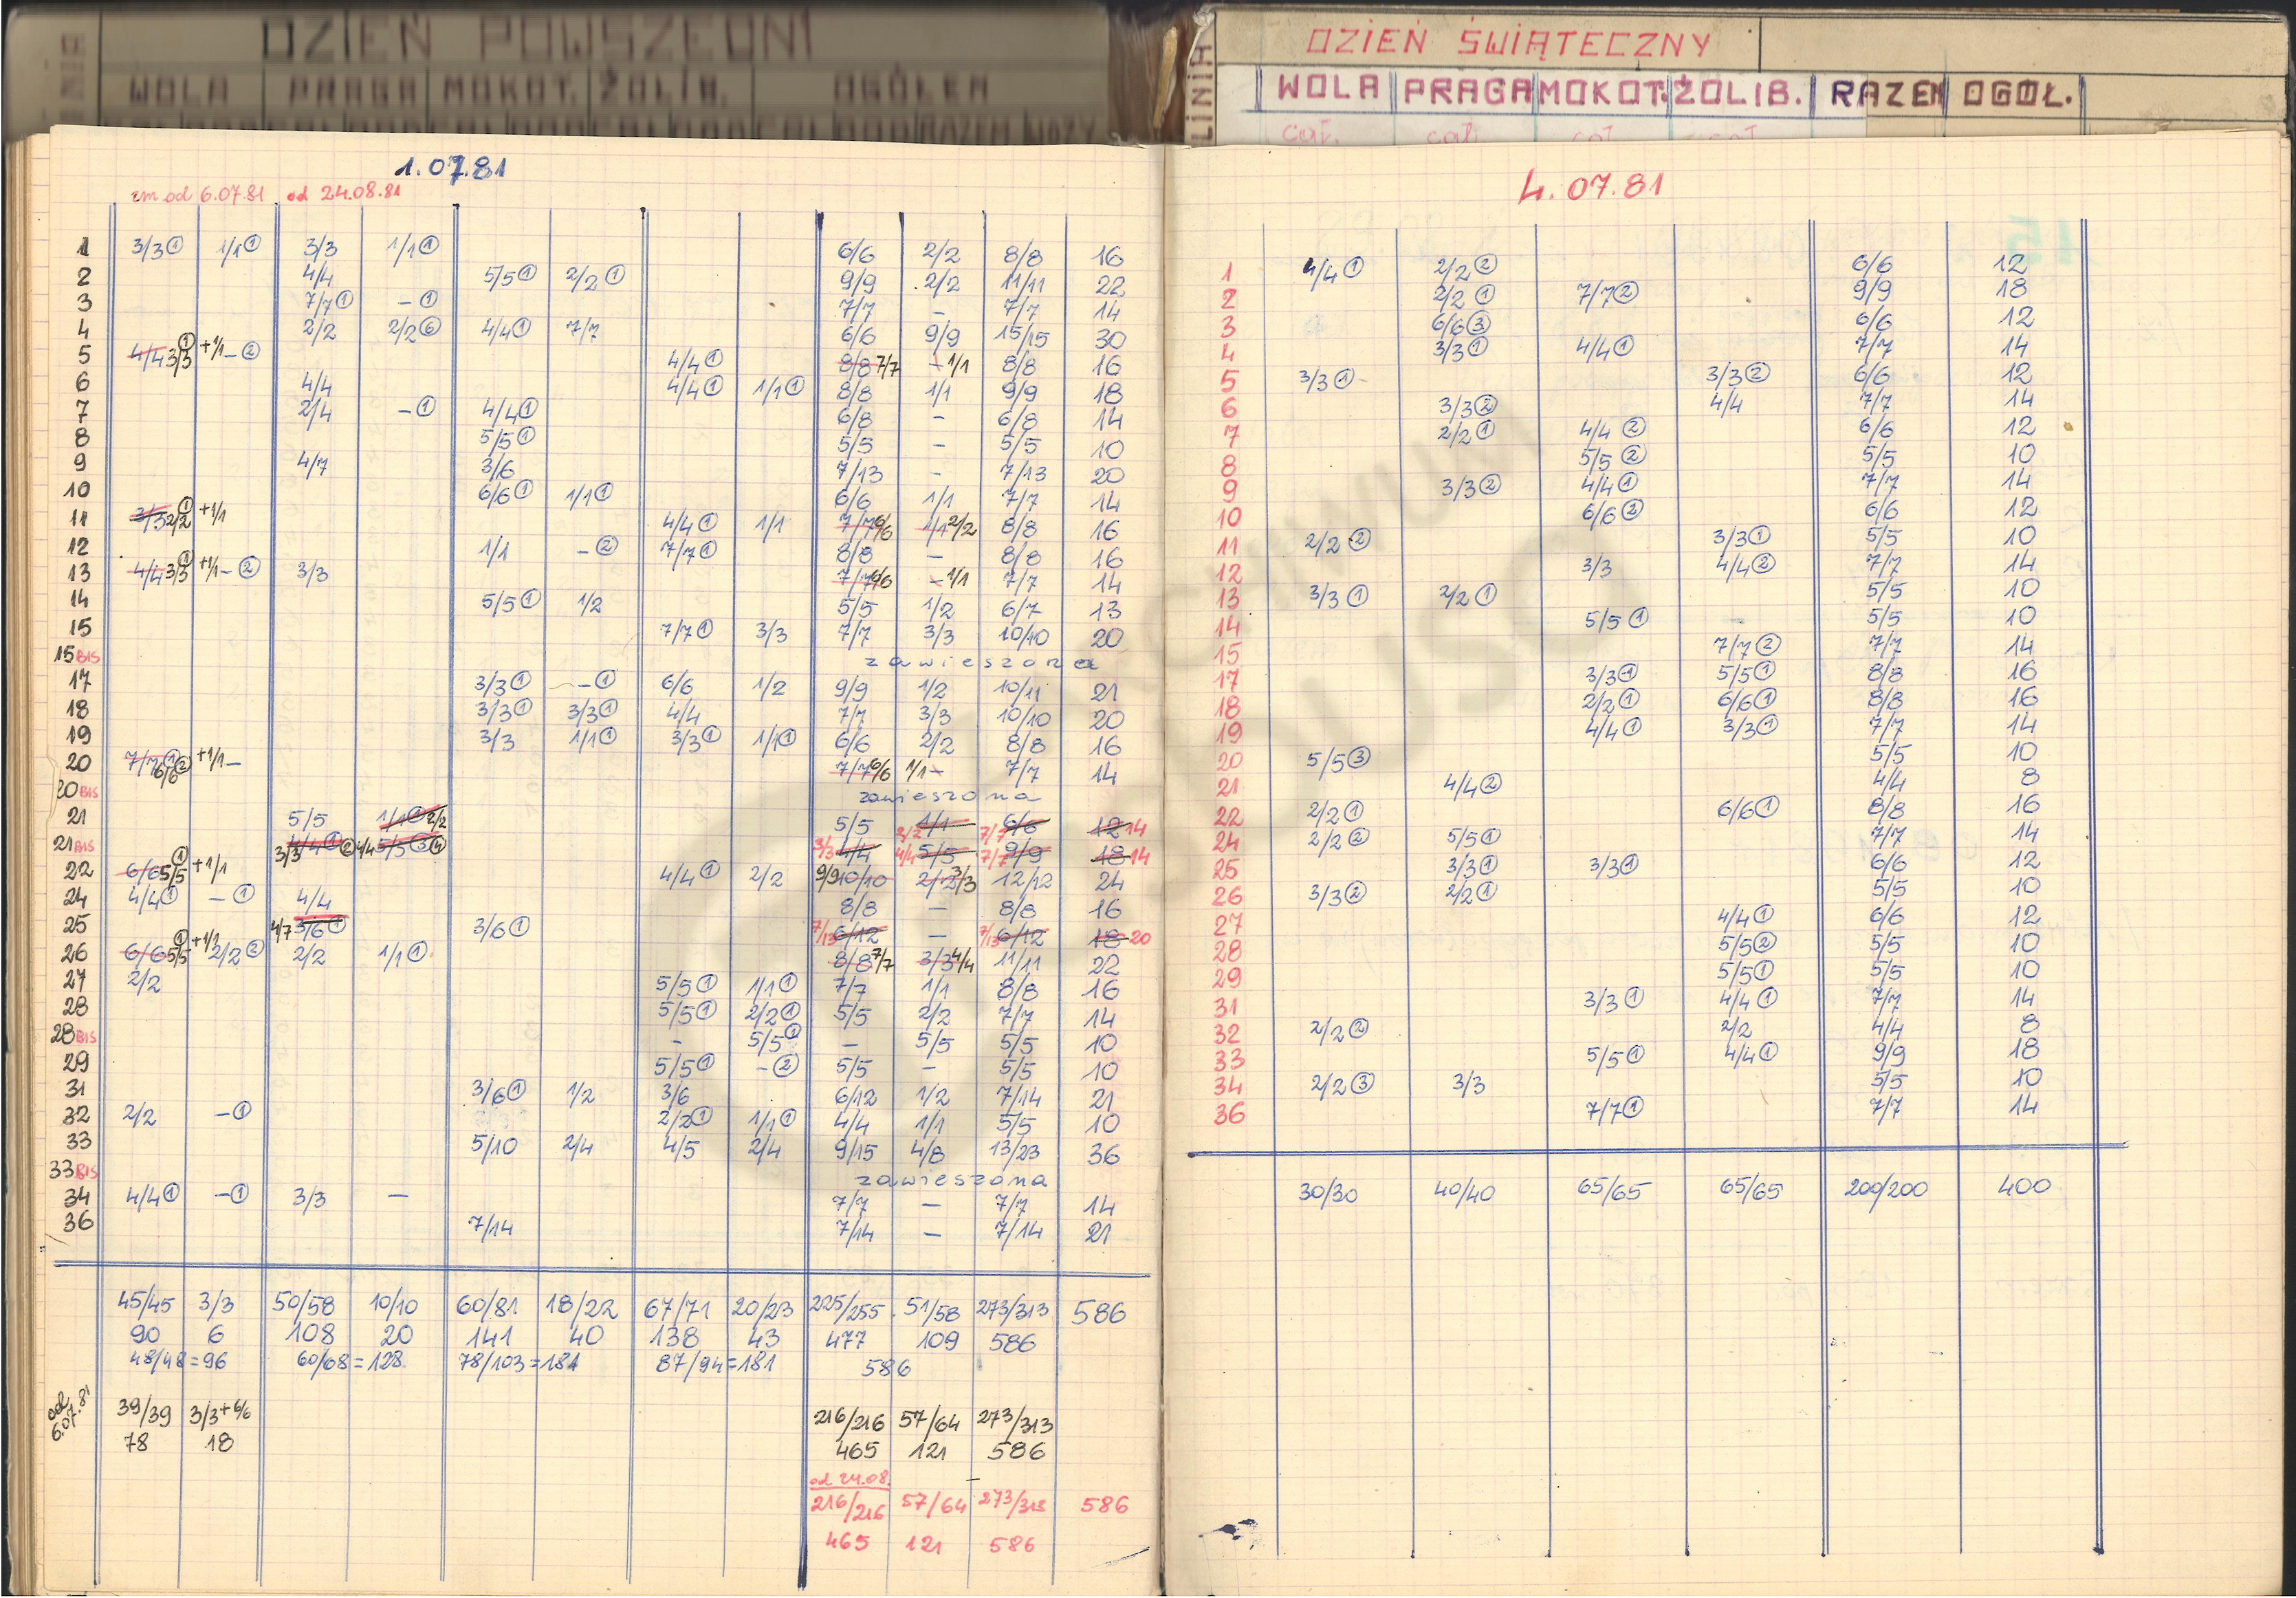 LINIA
DZIEŃ POWSZEDNI
WOLA PRAGA MOKOT. ŻOLIB. OGÓŁEM
1.07.81
zm od 6.07.81 od 24.08.81
1 3/3① 1/1① 3/3 1/1① 6/6 2/2 8/8 16
2 4/4 5/5① 2/2① 9/9 2/2 11/11 22
3 7/7① -① 7/7 - 7/7 14
4 2/2 2/2⑥ 4/4① 7/7 6/6 9/9 15/15 30
5 4/4 3/3① +1/1 -② 4/4① 8/8 7/7 - 1/1 8/8 16
6 4/4 4/4① 1/1① 8/8 1/1 9/9 18
7 2/4 -① 4/4① 6/8 - 6/8 14
8 5/5① 5/5 - 5/5 10
9 4/7 3/6 7/13 - 7/13 20
10 6/6① 1/1① 6/6 1/1 7/7 14
11 3/3 2/2① +1/1 4/4① 1/1 7/7 6/6 1/1 2/2 8/8 16
12 1/1 -② 7/7① 8/8 - 8/8 16
13 4/4 3/3① +1/1 -② 3/3 7/7 6/6 - 1/1 7/7 14
14 5/5① 1/2 5/5 1/2 6/7 13
15 7/7① 3/3 7/7 3/3 10/10 20
15 BIS zawieszona
17 3/3① -① 6/6 1/2 9/9 1/2 10/11 21
18 3/3① 3/3① 4/4 7/7 3/3 10/10 20
19 3/3 1/1① 3/3① 1/1① 6/6 2/2 8/8 16
20 7/7① 6/6② +1/1 - 7/7 6/6 1/1 - 7/7 14
20 BIS zawieszona
21 5/5 1/1① 2/2 5/5 2/2 1/1 7/7 6/6 12 14
21 BIS 3/3 4/4① ② 4/4 5/5③ ④ 3/3 4/4 4/4 5/5 7/7 9/9 18 14
22 6/6 5/5① +1/1 4/4① 2/2 9/9 10/10 2/2 3/3 12/12 24
24 4/4① -① 4/4 8/8 - 8/8 16
25 4/7 3/6① 3/6① 7/13 6/12 - 7/13 6/12 18 20
26 6/6 5/5① +1/1 2/2② 2/2 1/1① 8/8 7/7 3/3 4/4 11/11 22
27 2/2 5/5① 1/1① 7/7 1/1 8/8 16
28 5/5① 2/2① 5/5 2/2 7/7 14
28 BIS - 5/5① - 5/5 5/5 10
29 5/5① -② 5/5 - 5/5 10
31 3/6① 1/2 3/6 6/12 1/2 7/14 21
32 2/2 -① 2/2① 1/1① 4/4 1/1 5/5 10
33 5/10 2/4 4/5 2/4 9/15 4/8 13/23 36
33 BIS zawieszona
34 4/4① -① 3/3 - 7/7 - 7/7 14
36 7/14 7/14 - 7/14 21
45/45 3/3 50/58 10/10 60/81 18/22 67/71 20/23 225/255 51/58 273/313 586
90 6 108 20 141 40 138 43 477 109 586
48/48=96 60/68=128 78/103=181 87/94=181 586
od 6.07.81
39/39 3/3+6/6 216/216 57/64 273/313
78 18 465 121 586
od 24.08.
216/216 57/64 273/313 586
465 121 586
LINIA
DZIEŃ ŚWIĄTECZNY
WOLA PRAGA MOKOT. ŻOLIB. RAZEM OGÓŁ.
cał. cał. cał. cał.
4.07.81
1 4/4① 2/2② 6/6 12
2 2/2① 7/7② 9/9 18
3 6/6③ 6/6 12
4 3/3① 4/4① 7/7 14
5 3/3① 3/3② 6/6 12
6 3/3② 4/4 7/7 14
7 2/2① 4/4② 6/6 12
8 5/5② 5/5 10
9 3/3② 4/4① 7/7 14
10 6/6② 6/6 12
11 2/2② 3/3① 5/5 10
12 3/3 4/4② 7/7 14
13 3/3① 2/2① 5/5 10
14 5/5① 5/5 10
15 7/7② 7/7 14
17 3/3① 5/5① 8/8 16
18 2/2① 6/6① 8/8 16
19 4/4① 3/3① 7/7 14
20 5/5③ 5/5 10
21 4/4② 4/4 8
22 2/2① 6/6① 8/8 16
24 2/2② 5/5① 7/7 14
25 3/3① 3/3① 6/6 12
26 3/3② 2/2① 5/5 10
27 4/4① 6/6 12
28 5/5② 5/5 10
29 5/5① 5/5 10
31 3/3① 4/4① 7/7 14
32 2/2② 2/2 4/4 8
33 5/5① 4/4① 9/9 18
34 2/2③ 3/3 5/5 10
36 7/7① 7/7 14
30/30 40/40 65/65 65/65 200/200 400